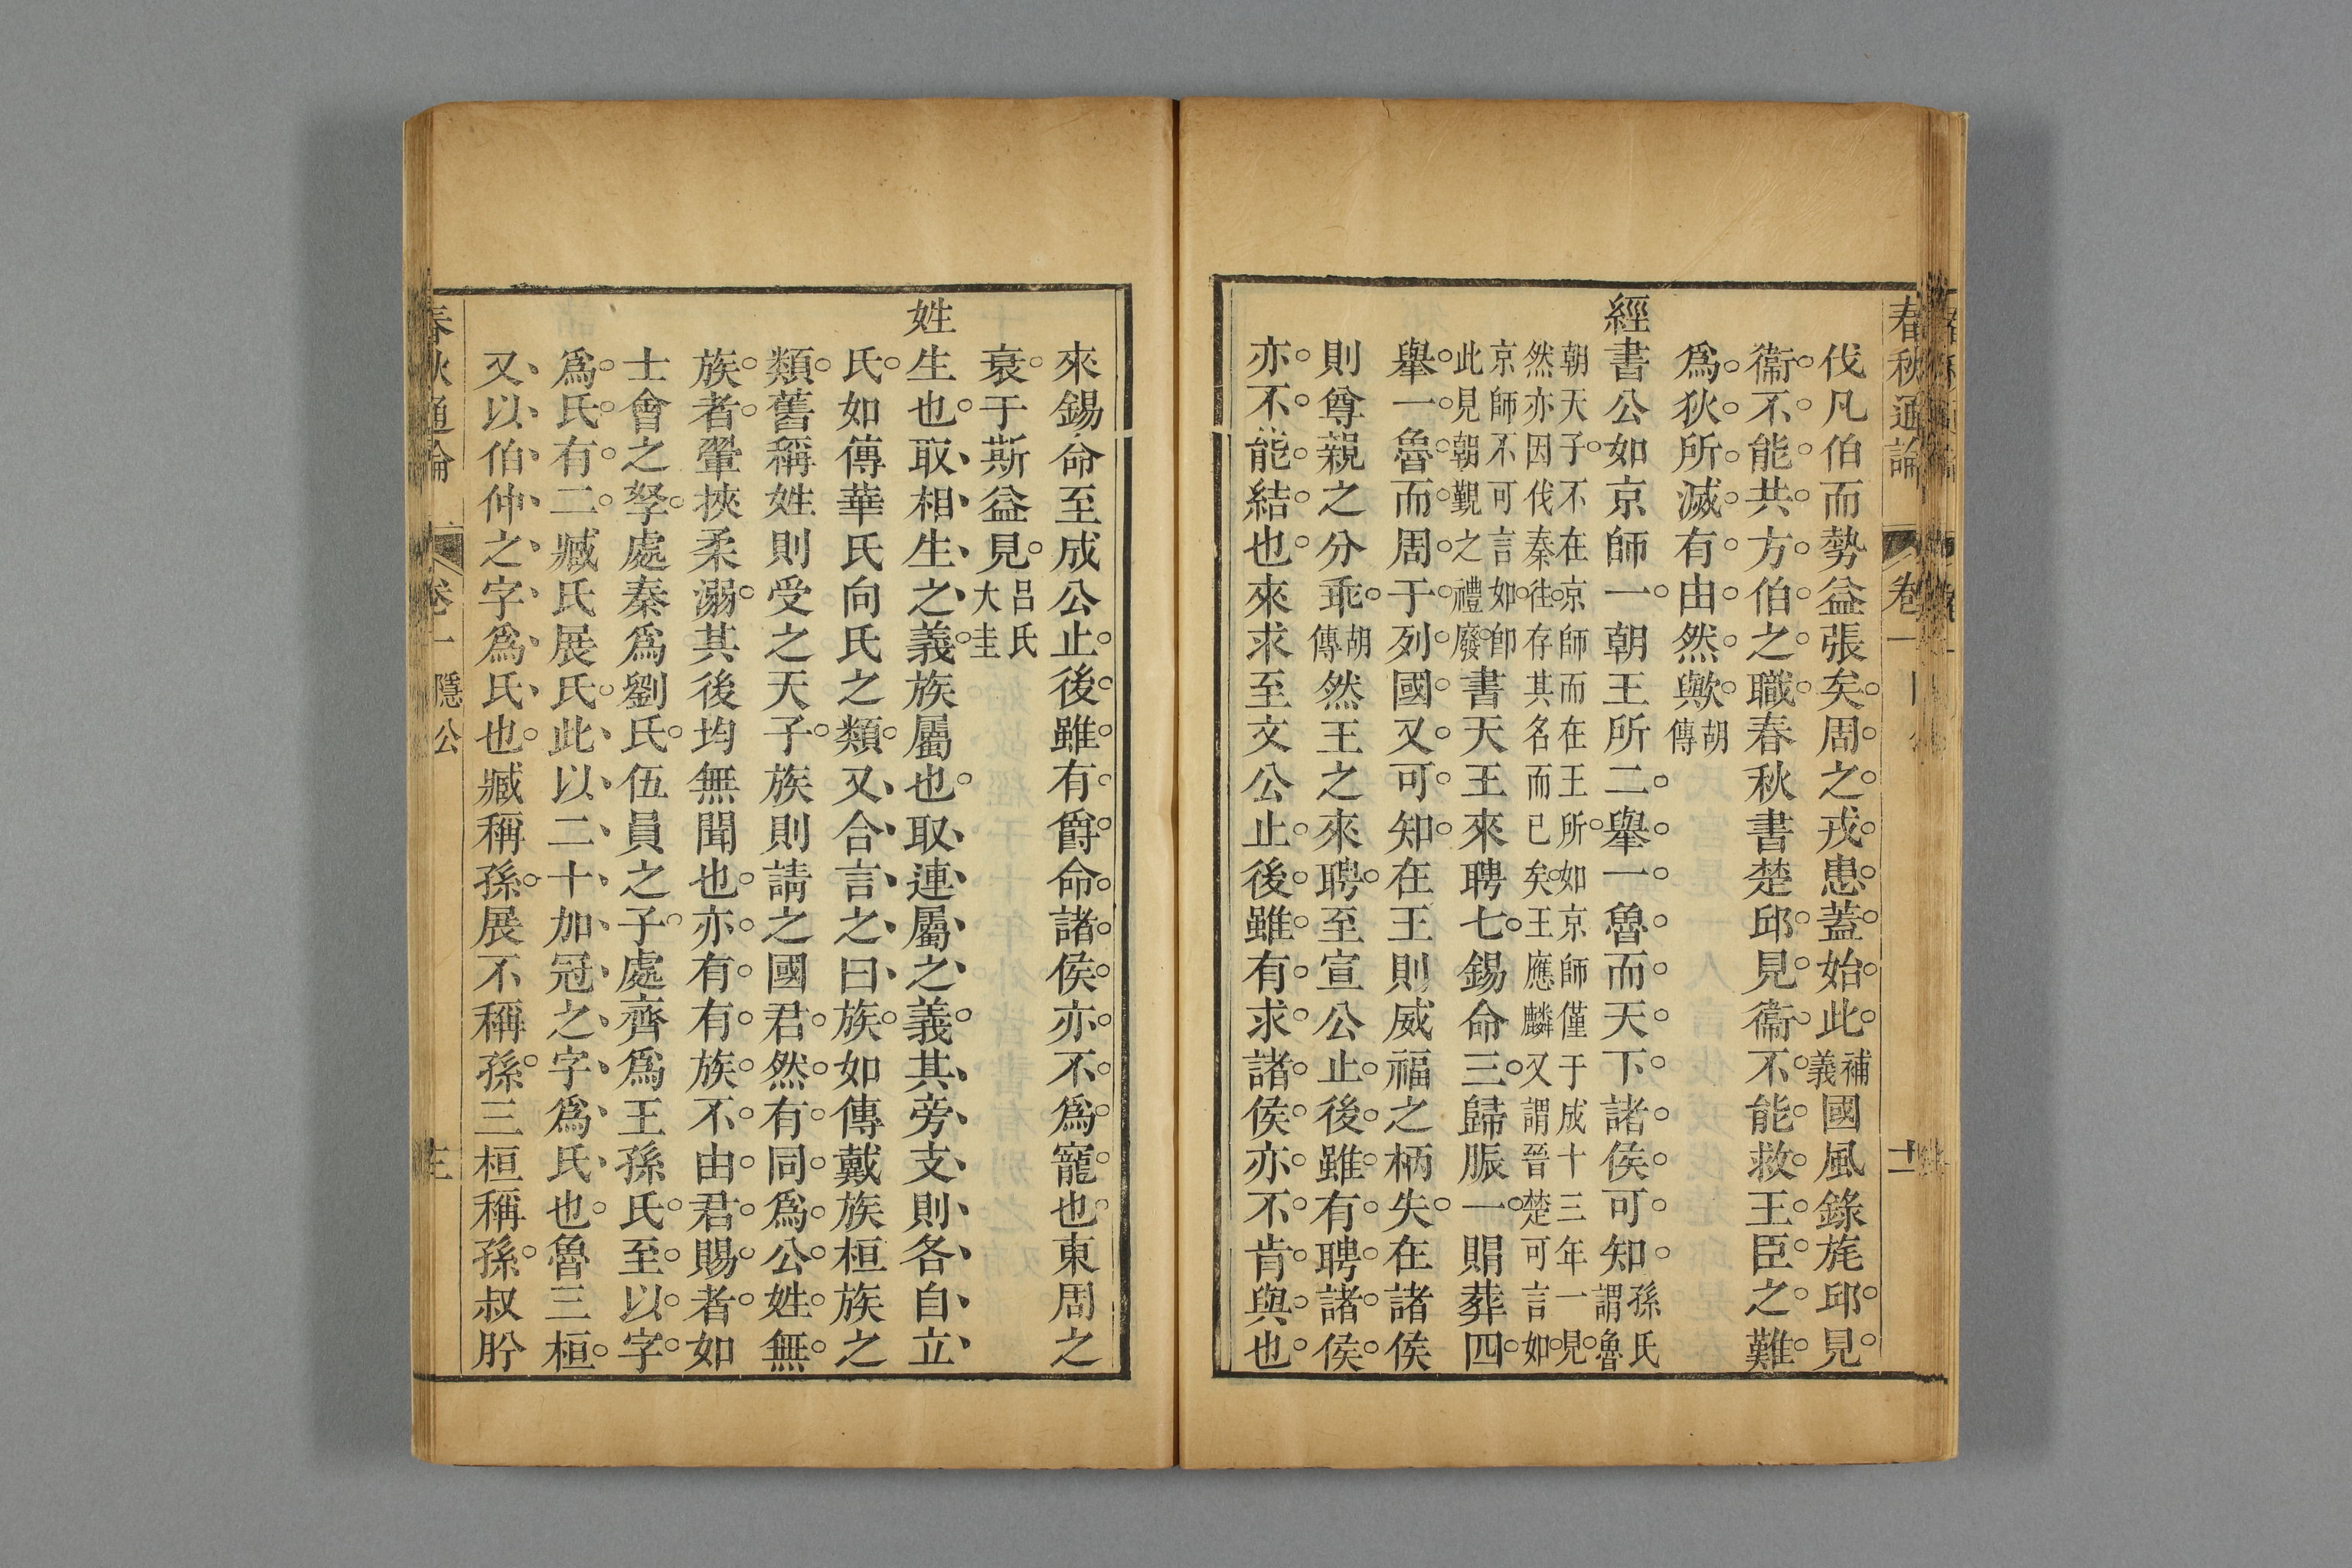 春秋通論 卷一 十二
伐凡伯而勢益張矣周之戎患蓋始此補義國風錄旄邱見
衞不能共方伯之職春秋書楚邱見衞不能救王臣之難
爲狄所滅有由然歟胡傳
經書公如京師一朝王所二舉一魯而天下諸侯可知孫氏謂魯
朝天子不在京師而在王所如京師僅于成十三年一見
然亦因伐秦往存其名而已矣王應麟又謂晉楚可言如
京師不可言如卽此見朝覲之禮廢書天王來聘七錫命三歸脤一賵葬四
舉一魯而周于列國又可知在王則威福之柄失在諸侯
則尊親之分乖胡傳然王之來聘至宣公止後雖有聘諸侯
亦不能結也來求至文公止後雖有求諸侯亦不肯與也
來錫命至成公止後雖有爵命諸侯亦不爲寵也東周之
衰于斯益見呂氏大圭
姓生也取相生之義族屬也取連屬之義其旁支則各自立
氏如傳華氏向氏之類又合言之曰族如傳戴族桓族之
類舊稱姓則受之天子族則請之國君然有同爲公姓無
族者翬挾柔溺其後均無聞也亦有有族不由君賜者如
士會之孥處秦爲劉氏伍員之子處齊爲王孫氏至以字
爲氏有二臧氏展氏此以二十加冠之字爲氏也魯三桓
又以伯仲之字爲氏也臧稱孫展不稱孫三桓稱孫叔肸
春秋通論 卷一 隱公